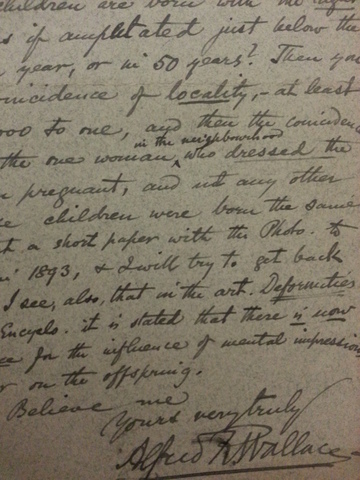 children are born with the right
s if amputated just below the
n year, or in 50 years? Then you
oincidence of locality,- at least
000 to one, and then the coincidenc
in the neighbourhood
the one woman who dressed the
n pregnant, and not any other
e children were born the same
t a short paper with the Photo. to
n' 1893, & I will try to get back
I see, also, that in the art. Deformities
Encyclo. it is stated that there is now
ce for the influence of mental impression
r on the offspring.
Believe me
Yours very truly
Alfred R Wallace